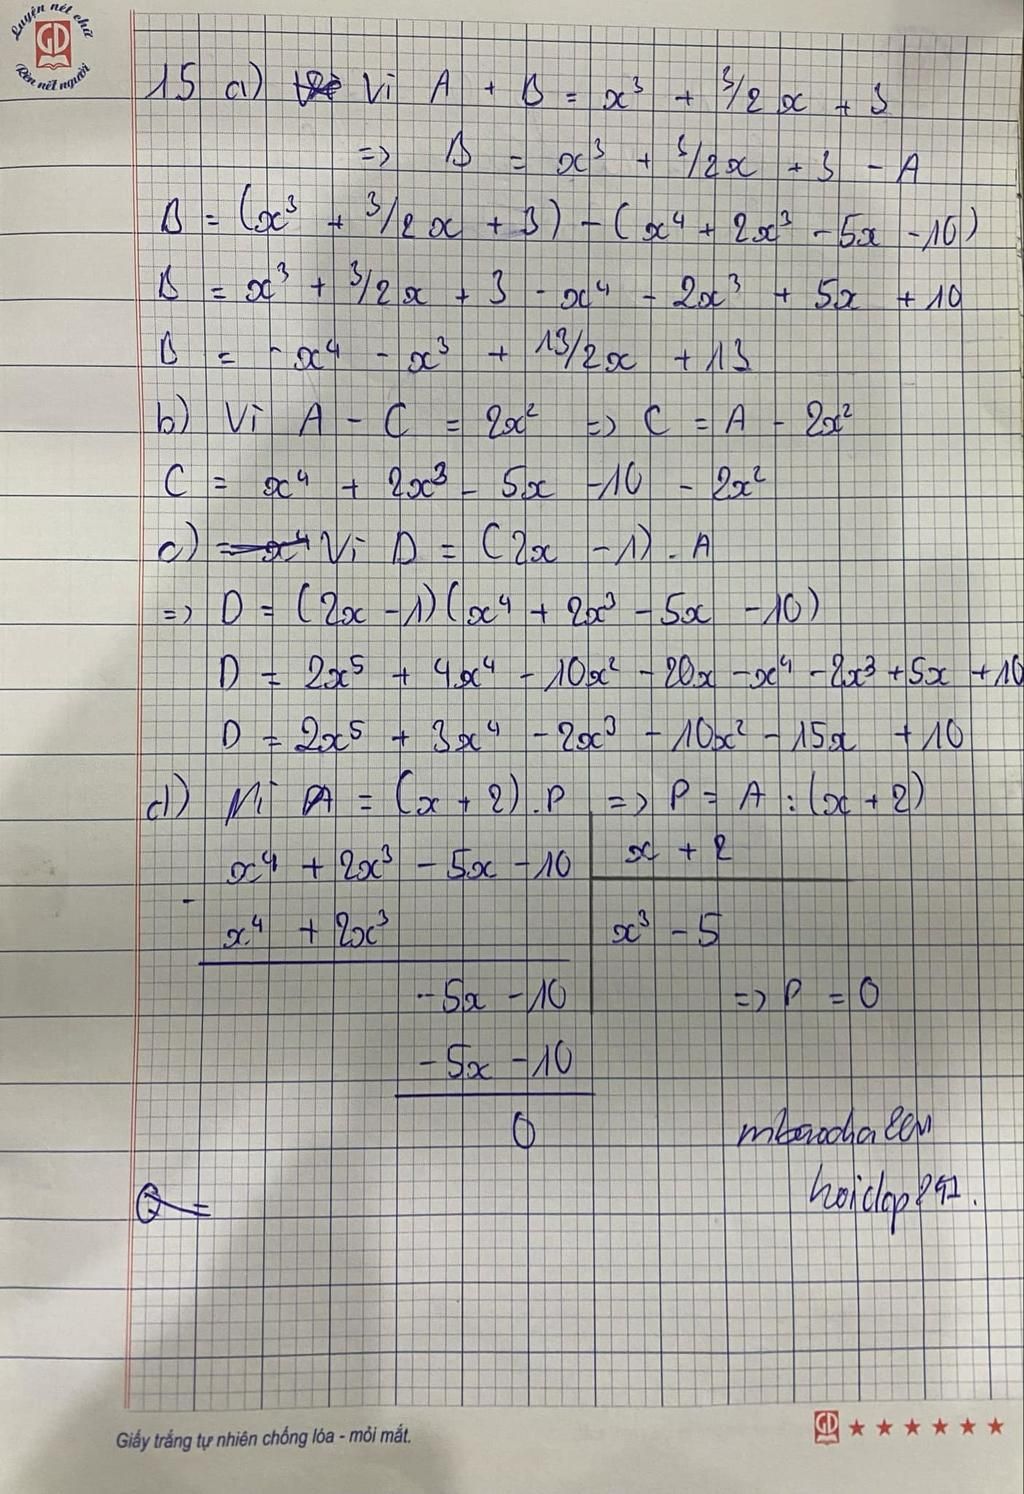 Luyện nét chữ
GD
Rèn nết người
15 a) Vì A + B = x³ + 3/2 x + 3
=> B = x³ + 3/2x + 3 - A
B = (x³ + 3/2x + 3) - (x⁴ + 2x³ - 5x - 10)
B = x³ + 3/2x + 3 - x⁴ - 2x³ + 5x + 10
B = -x⁴ - x³ + 13/2x + 13
b) Vì A - C = 2x² => C = A - 2x²
C = x⁴ + 2x³ - 5x - 10 - 2x²
c) Vì D = (2x - 1) . A
=> D = (2x - 1)(x⁴ + 2x³ - 5x - 10)
D = 2x⁵ + 4x⁴ - 10x² - 20x - x⁴ - 2x³ + 5x + 10
D = 2x⁵ + 3x⁴ - 2x³ - 10x² - 15x + 10
d) Vì A = (x + 2) . P => P = A : (x + 2)
x⁴ + 2x³ - 5x - 10 x + 2
-
x⁴ + 2x³ x³ - 5
-5x - 10 => P = 0
-5x - 10
0
hoidap247.
Giấy trắng tự nhiên chống lóa - mỏi mắt.
GD ★ ★ ★ ★ ★ ★